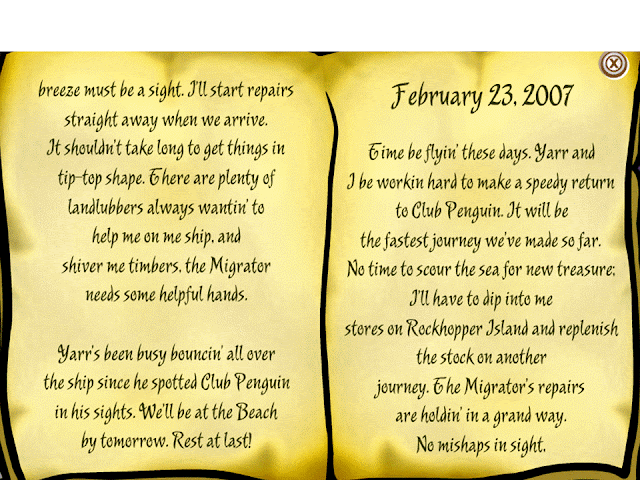 breeze must be a sight. I'll start repairs
straight away when we arrive.
It shouldn't take long to get things in
tip-top shape. There are plenty of
landlubbers always wantin' to
help me on me ship, and
shiver me timbers, the Migrator
needs some helpful hands.
Yarr's been busy bouncin' all over
the ship since he spotted Club Penguin
in his sights. We'll be at the Beach
by tomorrow. Rest at last!
February 23, 2007
Time be flyin' these days. Yarr and
I be workin hard to make a speedy return
to Club Penguin. It will be
the fastest journey we've made so far.
No time to scour the sea for new treasure;
I'll have to dip into me
stores on Rockhopper Island and replenish
the stock on another
journey. The Migrator's repairs
are holdin' in a grand way.
No mishaps in sight.
X